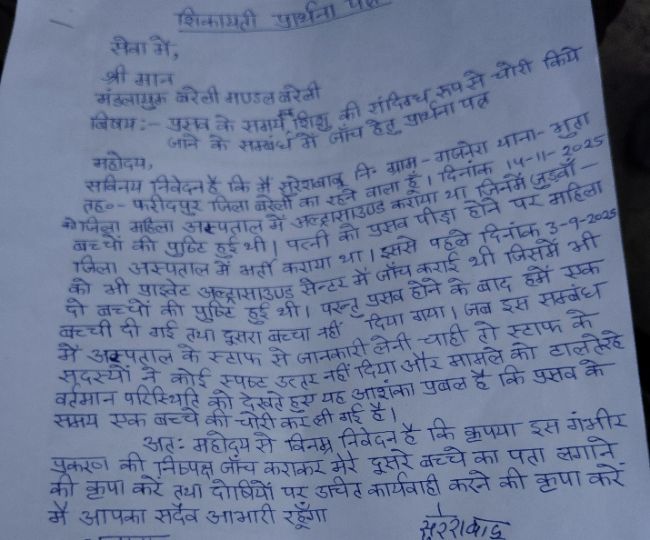 शिकायती प्रार्थना पत्र
सेवा में,
श्री मान
मंडलायुक्त बरेली मण्डल बरेली
विषय:- प्रसव के समय शिशु की संदिग्ध रूप से चोरी किये
जाने के सम्बन्ध में जाँच हेतु प्रार्थना पत्र
महोदय,
सविनय निवेदन है कि मैं सुरेशबाबू नि० ग्राम- गजनेरा थाना- भुता
तह०- फरीदपुर जिला बरेली का रहने वाला हूँ। दिनांक 14-11-2025
को जिला महिला अस्पताल में अल्ट्रासाउण्ड कराया था जिनमें जुड़वाँ-
बच्चों की पुष्टि हुई थी। पत्नी को प्रसव पीड़ा होने पर महिला
जिला अस्पताल में भर्ती कराया था। इससे पहले दिनांक 3-9-2025
को भी प्राइवेट अल्ट्रासाउण्ड सेन्टर में जाँच कराई थी जिसमें भी
दो बच्चों की पुष्टि हुई थी। परन्तु प्रसव होने के बाद हमें एक
बच्ची दी गई तथा दुसरा बच्चा नहीं दिया गया। जब इस सम्बंध
में अस्पताल के स्टाफ से जानकारी लेनी चाही तो स्टाफ के
सदस्यों ने कोई स्पष्ट उत्तर नहीं दिया और मामले को टालते रहे
वर्तमान परिस्थिति को देखते हुए यह आशंका प्रबल है कि प्रसव के
समय एक बच्चे की चोरी कर ली गई है।
अतः महोदय से विनम्र निवेदन है कि कृपया इस गंभीर
प्रकरण की निष्पक्ष जाँच कराकर मेरे दुसरे बच्चे का पता लगाने
की कृपा करें तथा दोषियों पर उचित कार्यवाही करने की कृपा करें
मैं आपका सदैव आभारी रहूँगा
सुरेशबाबू